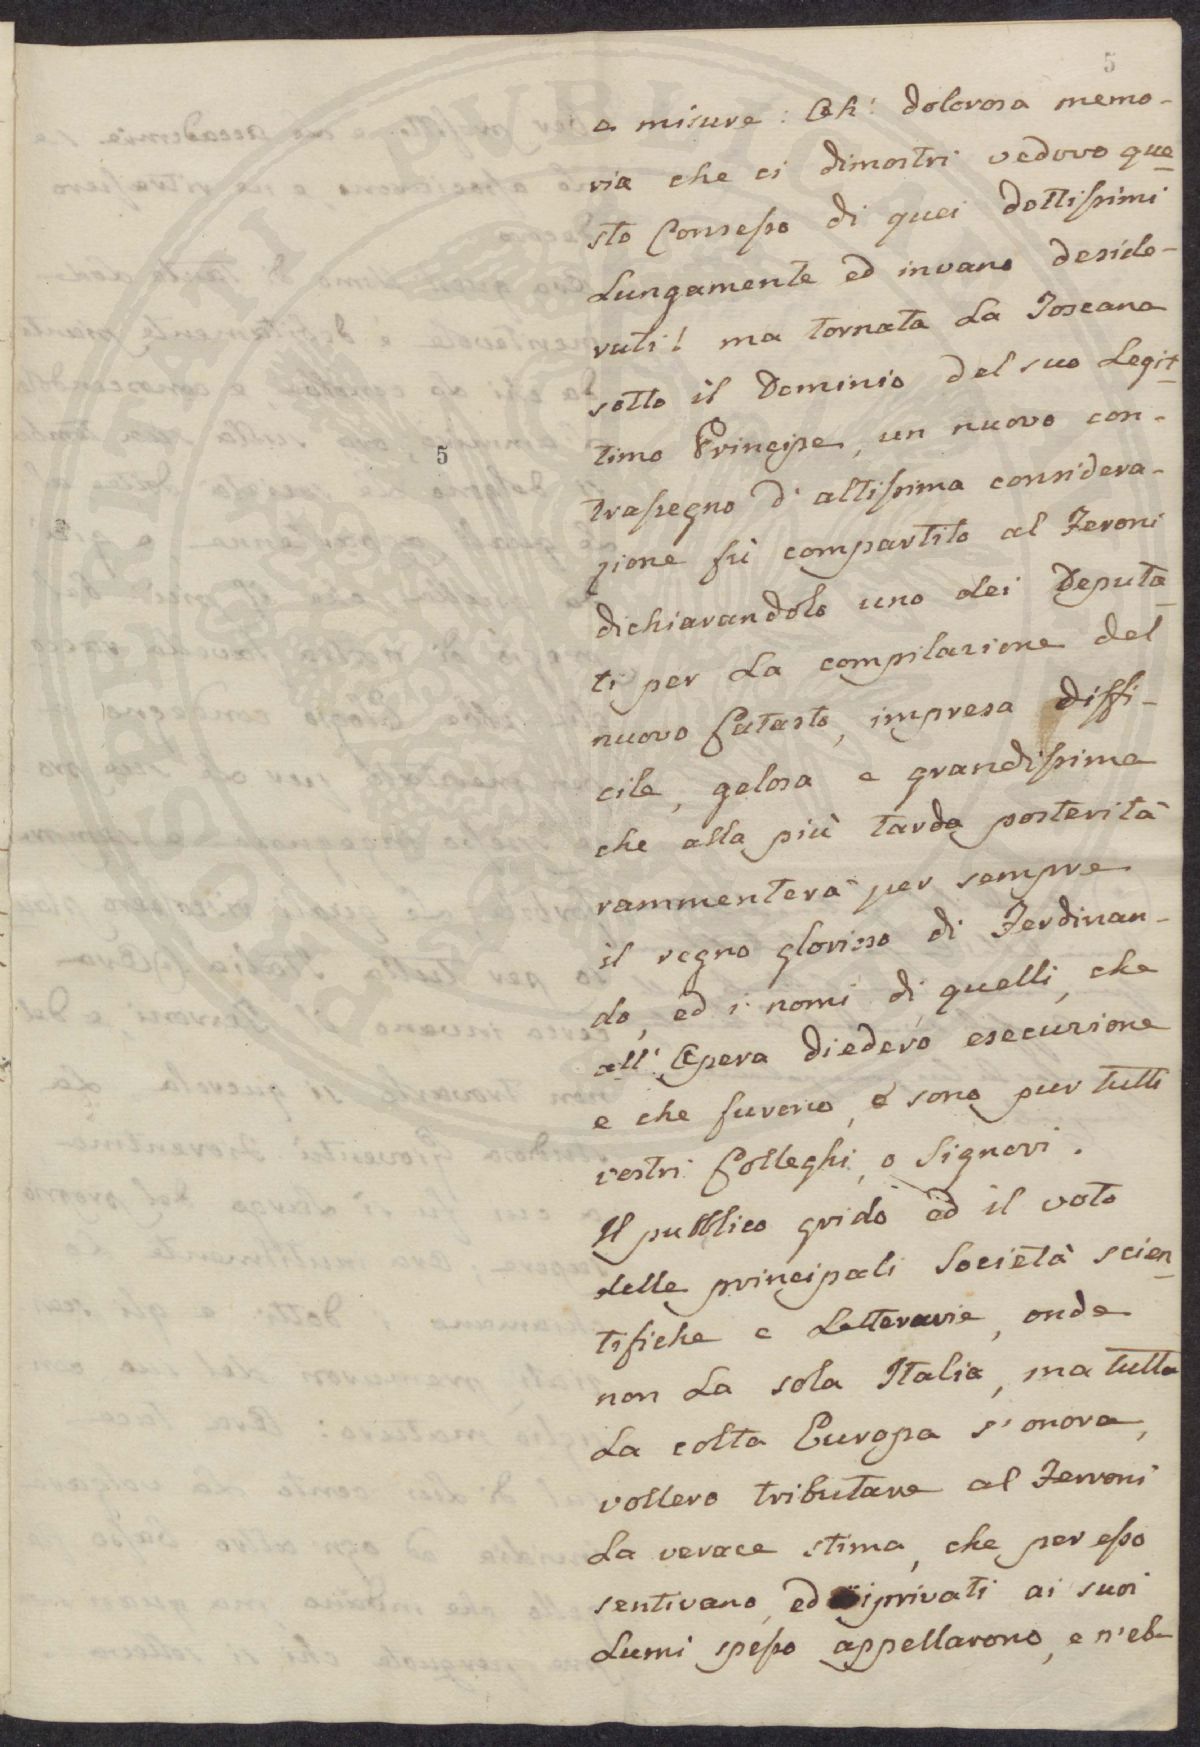 5
a misure : Ah! dolorosa memo-
ria che ci dimostri vedovo que
sto Consesso di quei dottissimi
Lungamente ed invano deside-
rati! ma tornata La Toscana
sotto il Dominio del suo Legit
timo Principe, un nuovo con-
trassegno d'altissima considera-
zione fù compartito al Feroni
dichiarandolo uno dei Deputa
ti per La compilazione del
nuovo Catasto, impresa diffi-
cile, gelosa e grandissima
che alla più tarda posterità
rammenterà per sempre
il regno glorioso di Ferdinan-
do, ed i nomi di quelli, che
all'Opera diedero esecuzione
e che furono, e sono pur tutti
vostri Colleghi, o Signori.
Il pubblico grido ed il voto
delle principali Società scien
tifiche e Letterarie, onde
non La sola Italia, ma tutta
La colta Europa s'onora,
vollero tributare al Ferroni
La verace stima, che per esso
sentivano, ed i privati ai suoi
Lumi spesso appellarono, e n'eb-
5